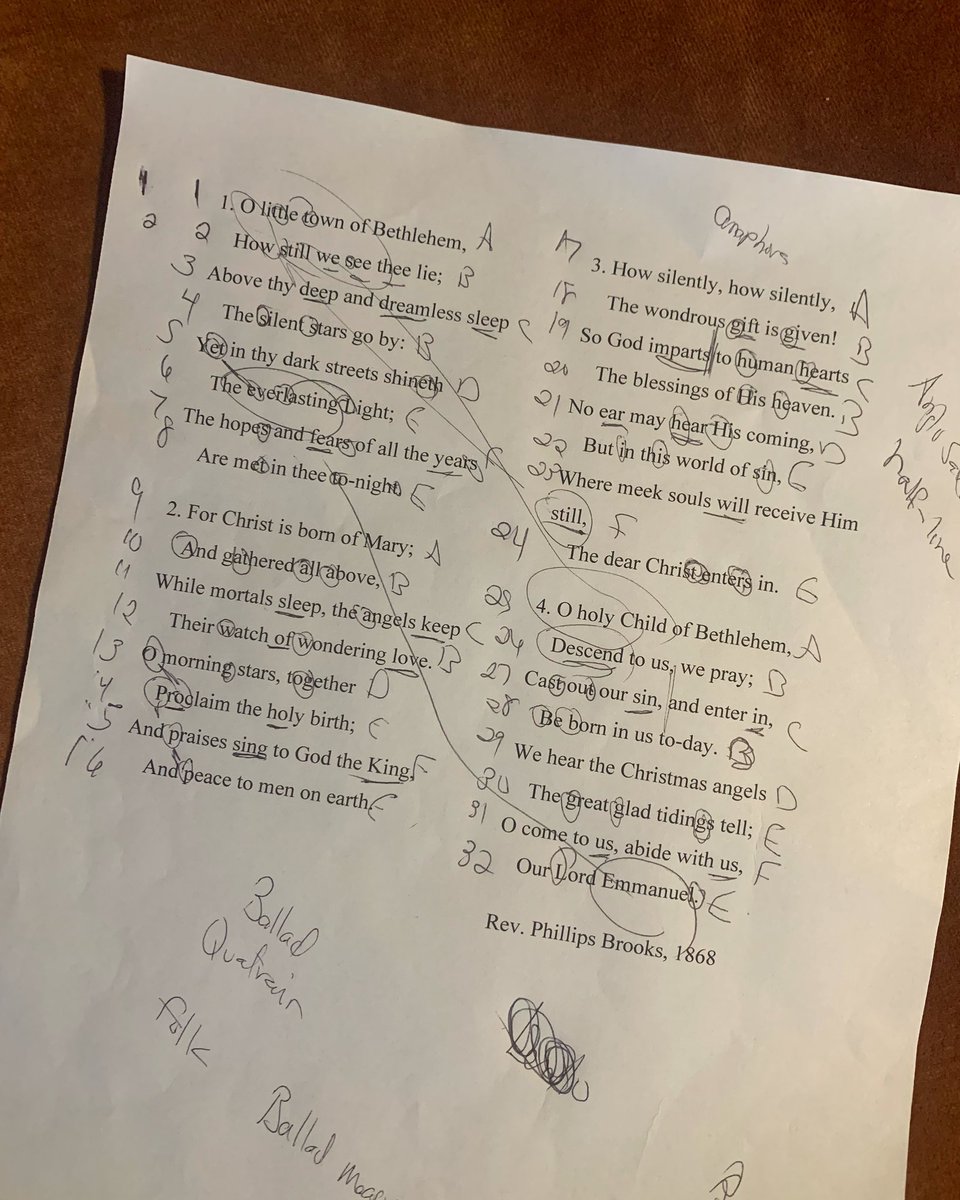 1 1 1. O little town of Bethlehem, A
2 2 How still we see thee lie; B
3 Above thy deep and dreamless sleep C
4 The silent stars go by: B
5 Yet in thy dark streets shineth D
6 The everlasting Light; E
7 The hopes and fears of all the years F
8 Are met in thee to-night. E
9 2. For Christ is born of Mary; A
10 And gathered all above, B
11 While mortals sleep, the angels keep C
12 Their watch of wondering love. B
13 O morning stars, together D
14 Proclaim the holy birth; E
15 And praises sing to God the King, F
16 And peace to men on earth. E
Ballad
Quatrain
folk
Ballad
anaphora
17 3. How silently, how silently, A
18 The wondrous gift is given! B
19 So God imparts to human hearts C
20 The blessings of His heaven. B
21 No ear may hear His coming, D
22 But in this world of sin, E
23 Where meek souls will receive Him
still, F
24 The dear Christ enters in. E
25 4. O holy Child of Bethlehem, A
26 Descend to us, we pray; B
27 Cast out our sin, and enter in, C
28 Be born in us to-day. B
29 We hear the Christmas angels D
30 The great glad tidings tell; E
31 O come to us, abide with us, F
32 Our Lord Emmanuel. E
Rev. Phillips Brooks, 1868
half-line